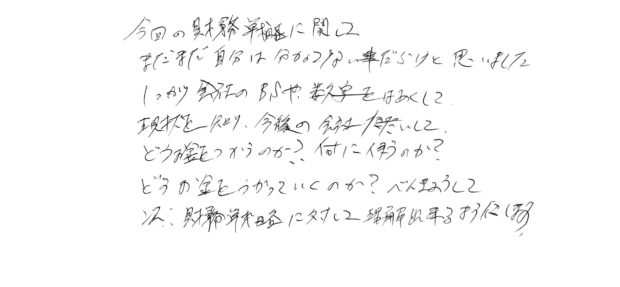 今回の財務戦略に関して
まだまだ自分は分かってない事だらけと思いました
しっかり会社のBSや、数字をはあくして
現状を知り、今後の会社にたいして
どうお金をつかうのか?何に使うのか?
どうお金をつかっていくのか?べんきょうして
次、財務戦略に対して理解出来るようにします